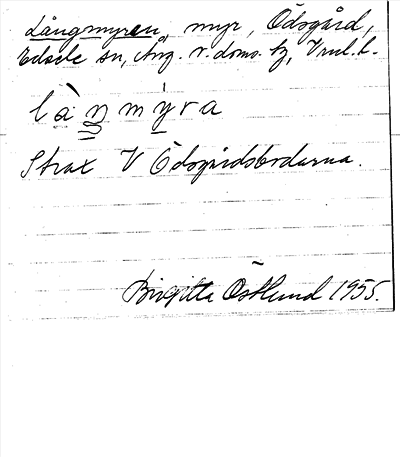 Långmyren, myr, Ödsgård,
Edsele sn, Ång. v. doms. tg, Vnrl. l.
låŋmýra
Strax V Ödsgårdsbodarna.
Birgitta Östlund 1955.